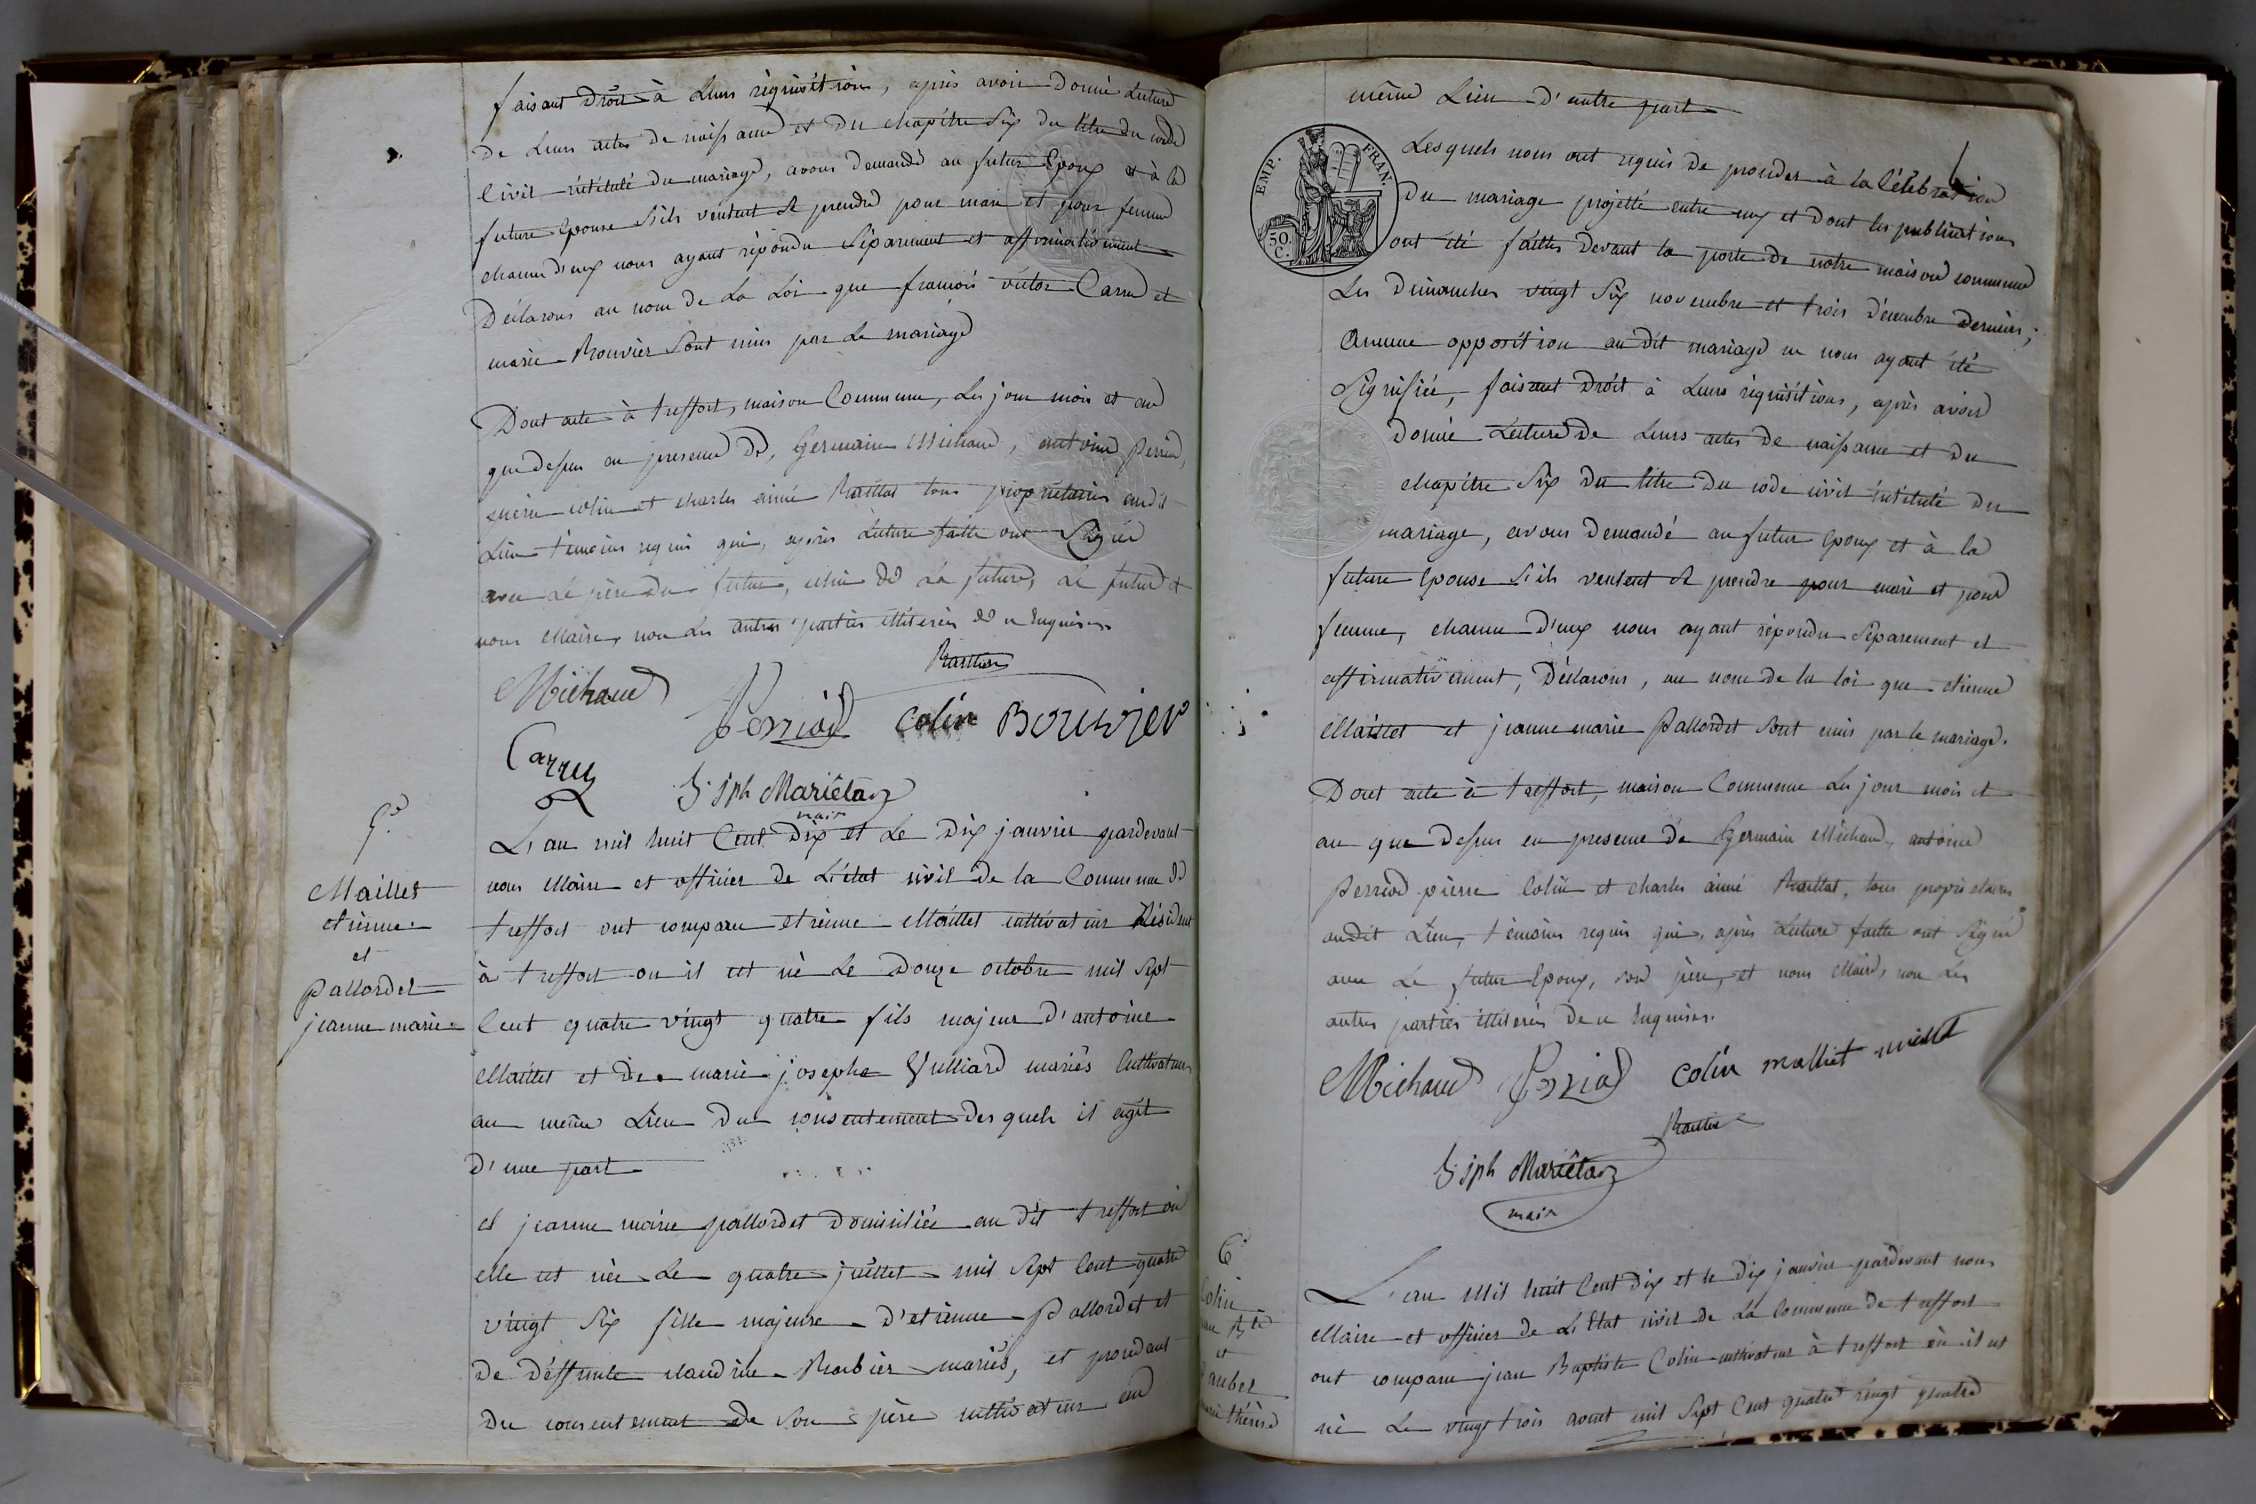 faisant Droit à Leurs réquisition, après avoir Donné Lecture
de Leurs actes de naissance et du chapitre Six du titre du code
Civil intitulé du mariage, avons demandé au futur Epoux et à la
future Epouse S'ils veulent se prendre pour mari et pour femme
chacun d'eux nous ayant répondu Séparement et affirmativement
Déclarons au nom de La Loi que francois victor Carru et
marie Bouvier Sont unis par Le mariage
Dont acte à treffort, maison Commune, Les jour mois et an
que dessus en presence de, Germain Michaud, antoine Perriod,
pierre colin et charles aimé tous propriétaires audit
Lieu témoins requis qui, après Lecture faitte ont Signé
avec Le père du futur, celui de La future, Le futur et
nous Maire, non Les autres parties illiterées de ce Enquises.
Michaud Perriod colin Bouvier
Carru
J. jph Mariétan
maire
5.e
Maillet
etienne
et
pallordet
jeanne marie
L'an mil huit Cent Dix et Le Dix janvier pardevant
nous Maire et officier de L'état civil de la Commune de
treffort ont comparu etienne Maillet cultivateur Résidant
à treffort ou il est né Le Douze octobre mil Sept
Cent quatre vingt quatre fils majeur d'antoine
Maillet et de marie josephe Vulliard mariés Cultivateurs
au même Lieu Du consentement desquels il agit
d'une part
et jeanne marie pallordet Domiciliée au dit treffort où
elle est née Le quatre juillet mil Sept Cent quatre
vingt Six fille majeure d'etienne Pallordet et
De Déffunte claudine Barbier mariés, et procedant
Du consentement de Son père cultivateur au
même Lieu D'autre part
EMP. FRAN.
50.
C.
Lesquels nous ont requis de proceder à la Célébration
Du mariage projetté entre eux et dont les publications
ont été faittes devant la porte de notre maison commune
Les Dimanches vingt Six novembre et trois décembre derniers;
Aucune opposition au dit mariage ne nous ayant été
Signifiée, faisant Droit à Leurs réquisitions, après avoir
donné Lecture de Leurs actes de naissance et du
chapitre Six Du titre Du code civil intitulé Du
mariage, avons demandé au futur Epoux et à la
future Epouse S'ils veulent se prendre pour mari et pour
femme, chacun D'eux nous ayant répondu Séparement et
affirmativement, Déclarons, au nom de la loi que etienne
Maillet et jeanne marie Pallordet Sont unis par le mariage.
Dont acte à treffort, maison Commune Les jour mois et
an que dessus en presence de Germain Michaud, antoine
Perriod pierre Colin et charles aimé tous propriétaires
audit Lieu, témoins requis qui, après Lecture faitte ont Signé
avec Le futur Epoux, son père, et nous Maire, non Les
autres parties illiterées De ce Enquises.
Michaud Perriod colin malliet
J. jph Mariétan
maire
6.e
Colin
et
marie thérèse
L'an Mil huit Cent Dix et le Dix janvier pardevant nous
Maire et officier de L'Etat civil de La Commune de treffort
ont comparu jean Baptiste Colin cultivateur à treffort où il est
né Le vingt trois aout mil Sept Cent quatre vingt quatre